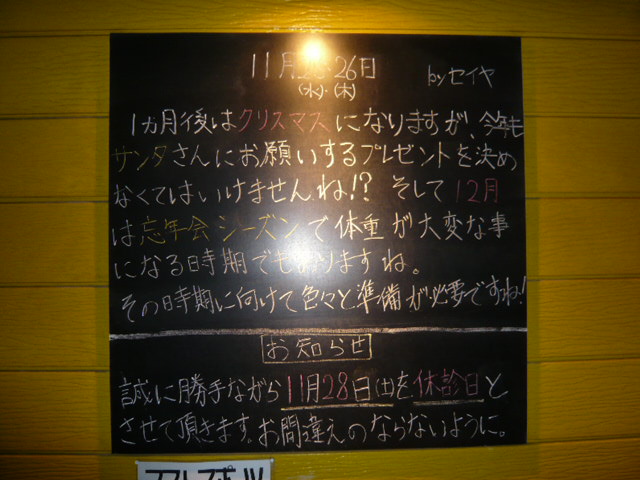 11月25・26日
(水)・(木) byセイヤ
1ヵ月後はクリスマスになりますが、今年も
サンタさんにお願いするプレゼントを決め
なくてはいけませんね!? そして12月
は忘年会シーズンで体重が大変な事
になる時期でもありますね。
その時期に向けて色々と準備が必要ですね!
お知らせ
誠に勝手ながら11月28日(土)を休診日と
させて頂きます。お間違えのならないように。